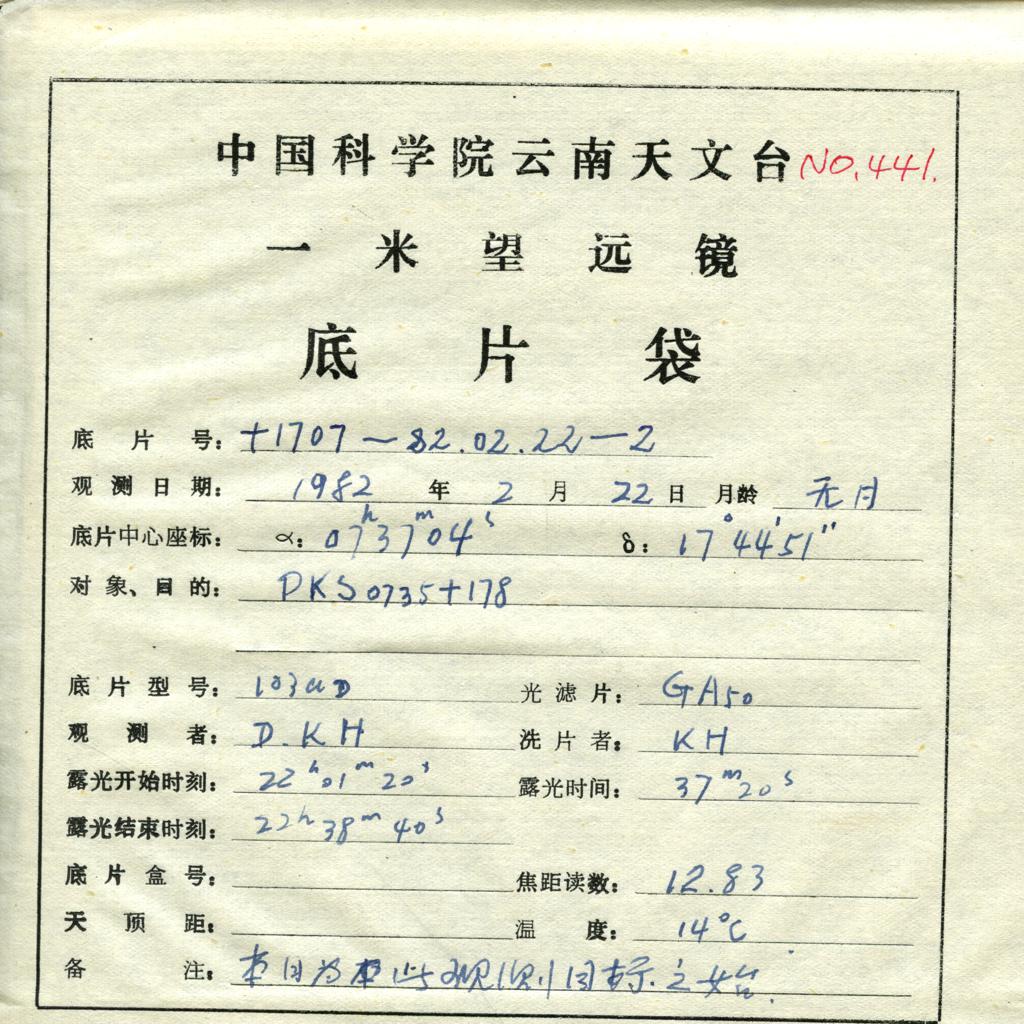 中国科学院云南天文台 NO.441.
一米望远镜
底片袋
底片号: +1707-82.02.22-2
观测日期: 1982 年 2 月 22 日 月龄 无月
底片中心座标: α: 07h37m04s δ: 17°44′51″
对象、目的: PKS0735+178
底片型号: 103aD 光滤片: GA50
观测者: D.KH 洗片者: KH
露光开始时刻: 22h01m20s 露光时间: 37m20s
露光结束时刻: 22h38m40s
底片盒号: 焦距读数: 12.83
天顶距: 温度: 14°C
备注: 本日为本 观测目标之始.